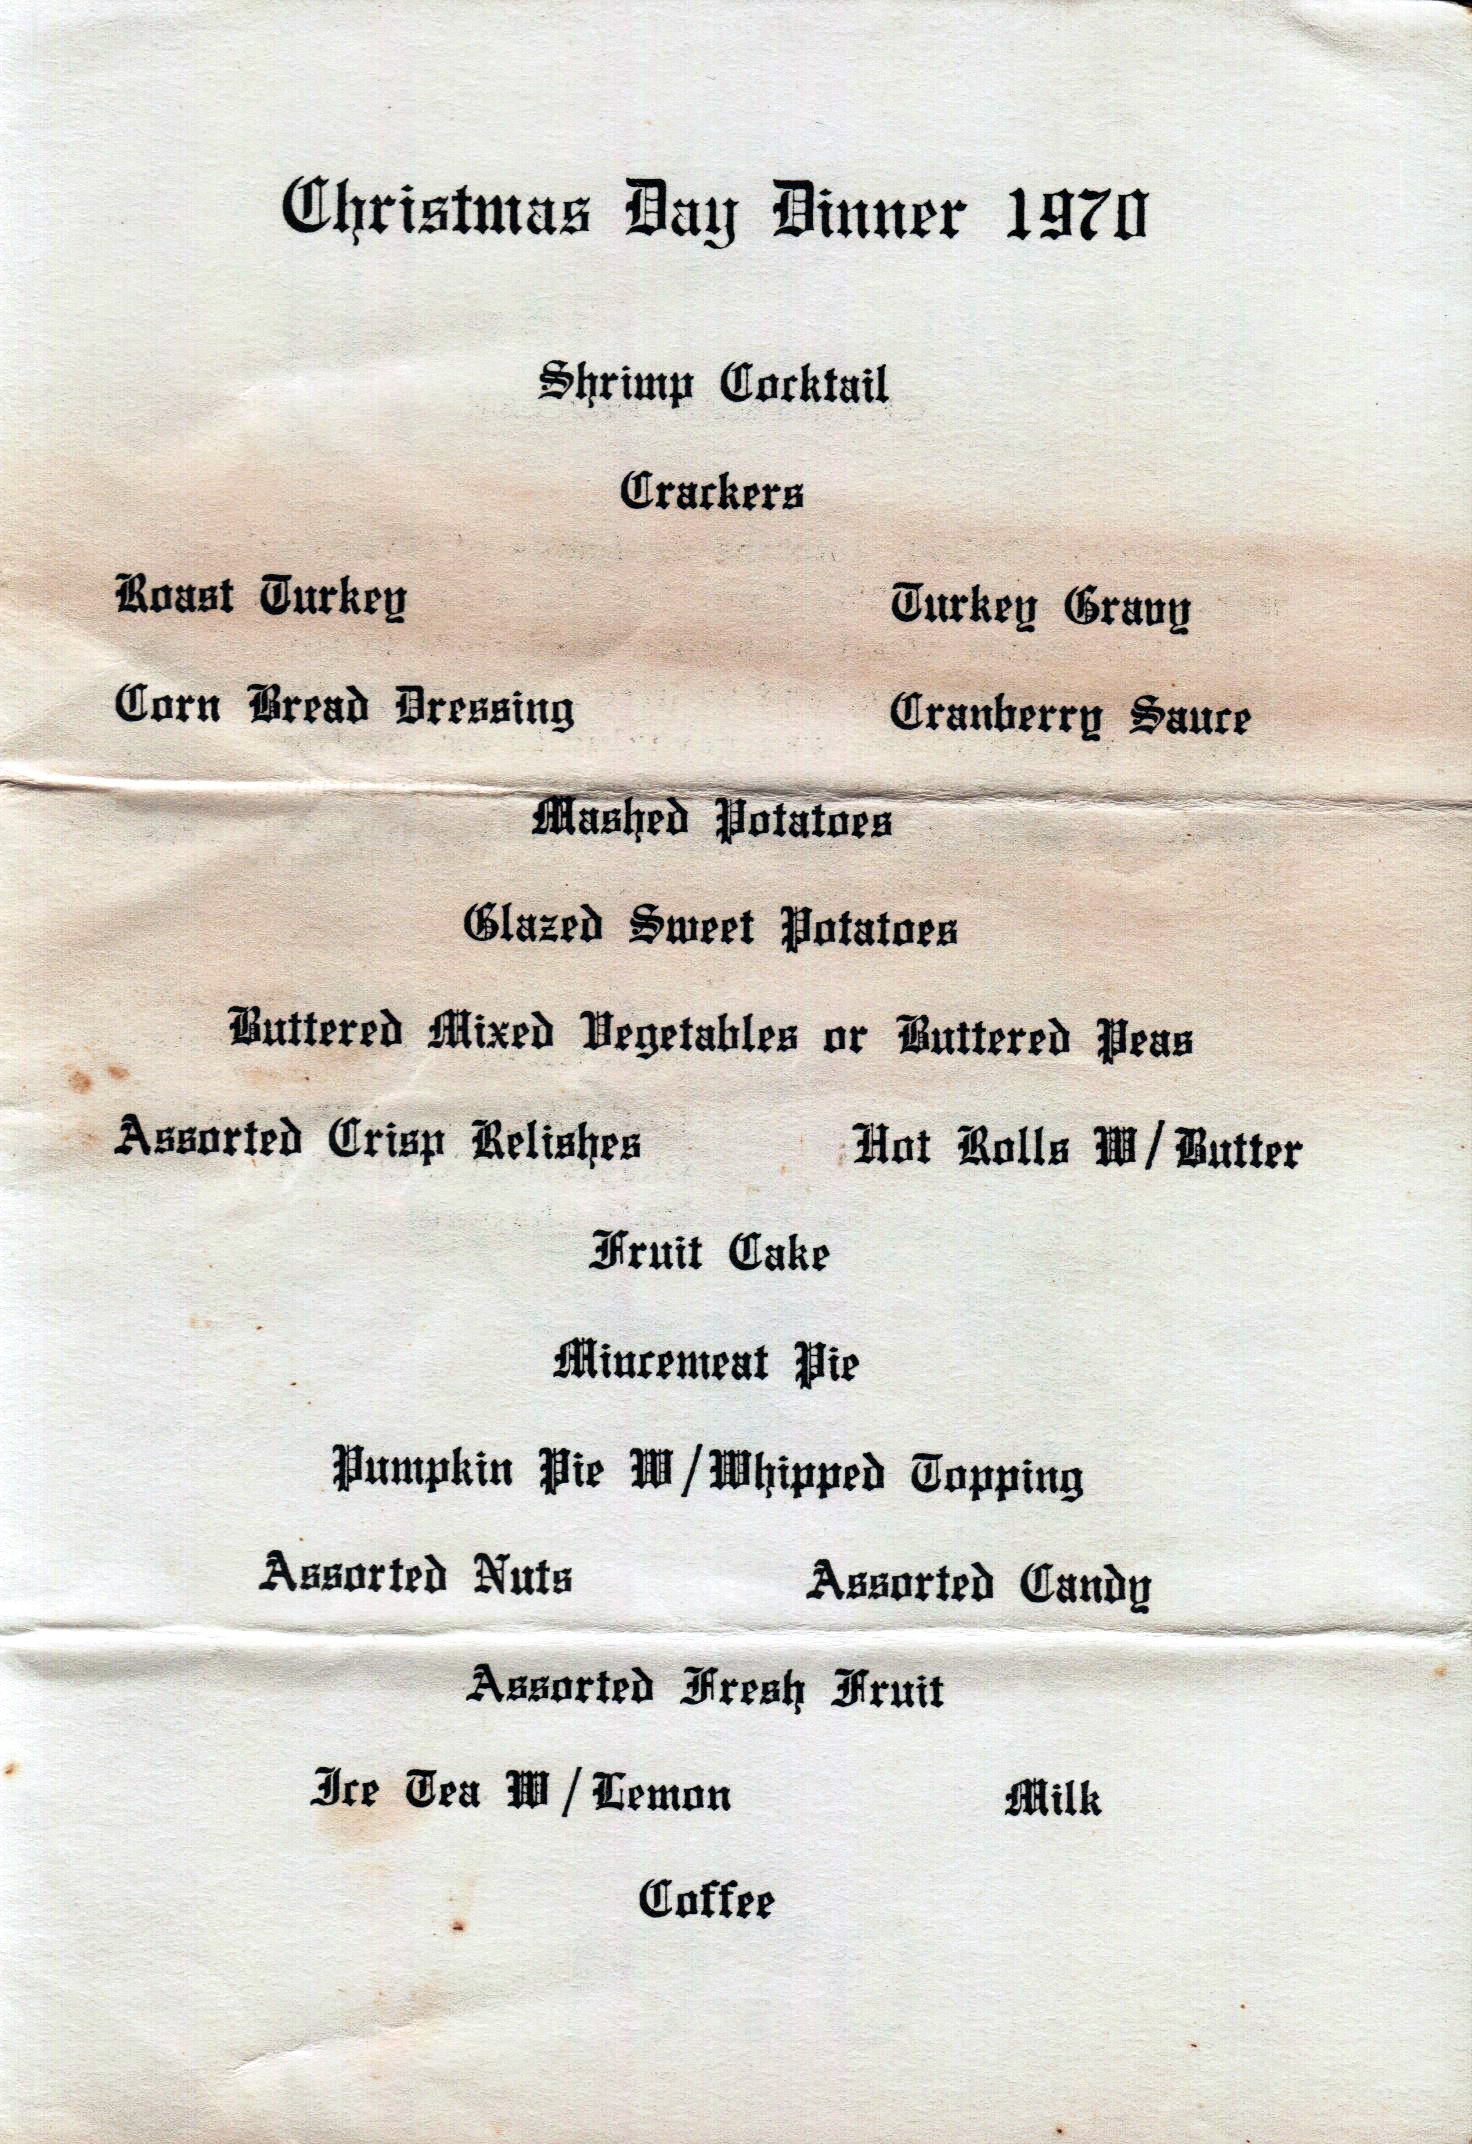 Christmas Day Dinner 1970
Shrimp Cocktail
Crackers
Roast Turkey Turkey Gravy
Corn Bread Dressing Cranberry Sauce
Mashed Potatoes
Glazed Sweet Potatoes
Buttered Mixed Vegetables or Buttered Peas
Assorted Crisp Relishes Hot Rolls W/Butter
Fruit Cake
Mincemeat Pie
Pumpkin Pie W/Whipped Topping
Assorted Nuts Assorted Candy
Assorted Fresh Fruit
Ice Tea W/Lemon Milk
Coffee